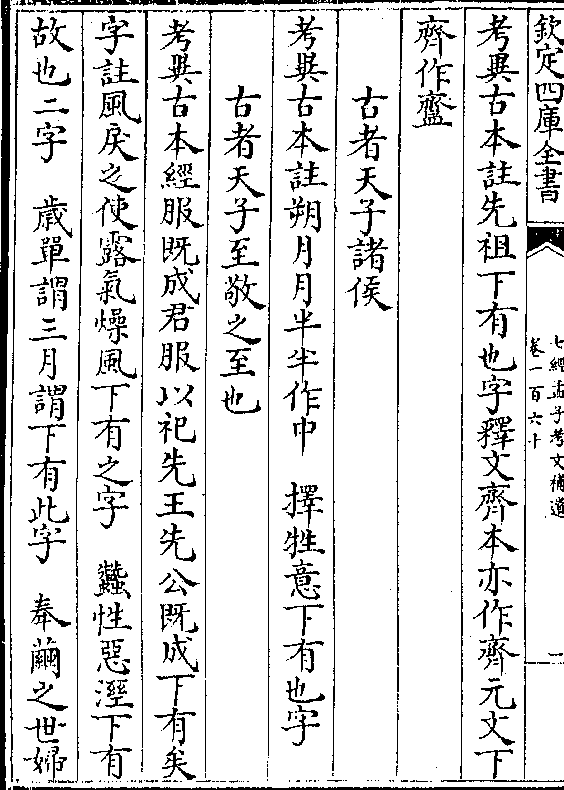 欽定四庫全書
七經孟子考文補遺
卷一百六十
一
考異古本註先祖下有也字釋文齊本亦作齊元文下
齊作齍
古者天子諸侯
考異古本註朔月月半半作中　擇牲意下有也字
古者天子至敬之至也
考異古本經服既成君服以祀先王先公既成下有矣
字註風戾之使露氣燥風下有之字　蠶性惡溼下有
故也二字　歲單謂三月謂下有此字　奉繭之世婦